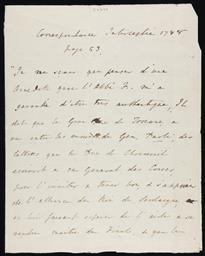 Correspondance Interceptée 1788
Page 53.
"Je ne sais que penser d'une
anecdote que l'Abbé F. m'a
garantie d'être très authentique, Il
dit que le Gra Duc de Toscane, a
eu entre les mains de Gen. Paoli, des
lettres que le Duc de Choiseuil
écrivit a ce General des Corses,
pour l'inviter a tenir bon, s'appuyer
de l'alliance du Roi de Sardaigne, en
lui faisant espérer de l'aider a se
rendre maitre du Finale, que